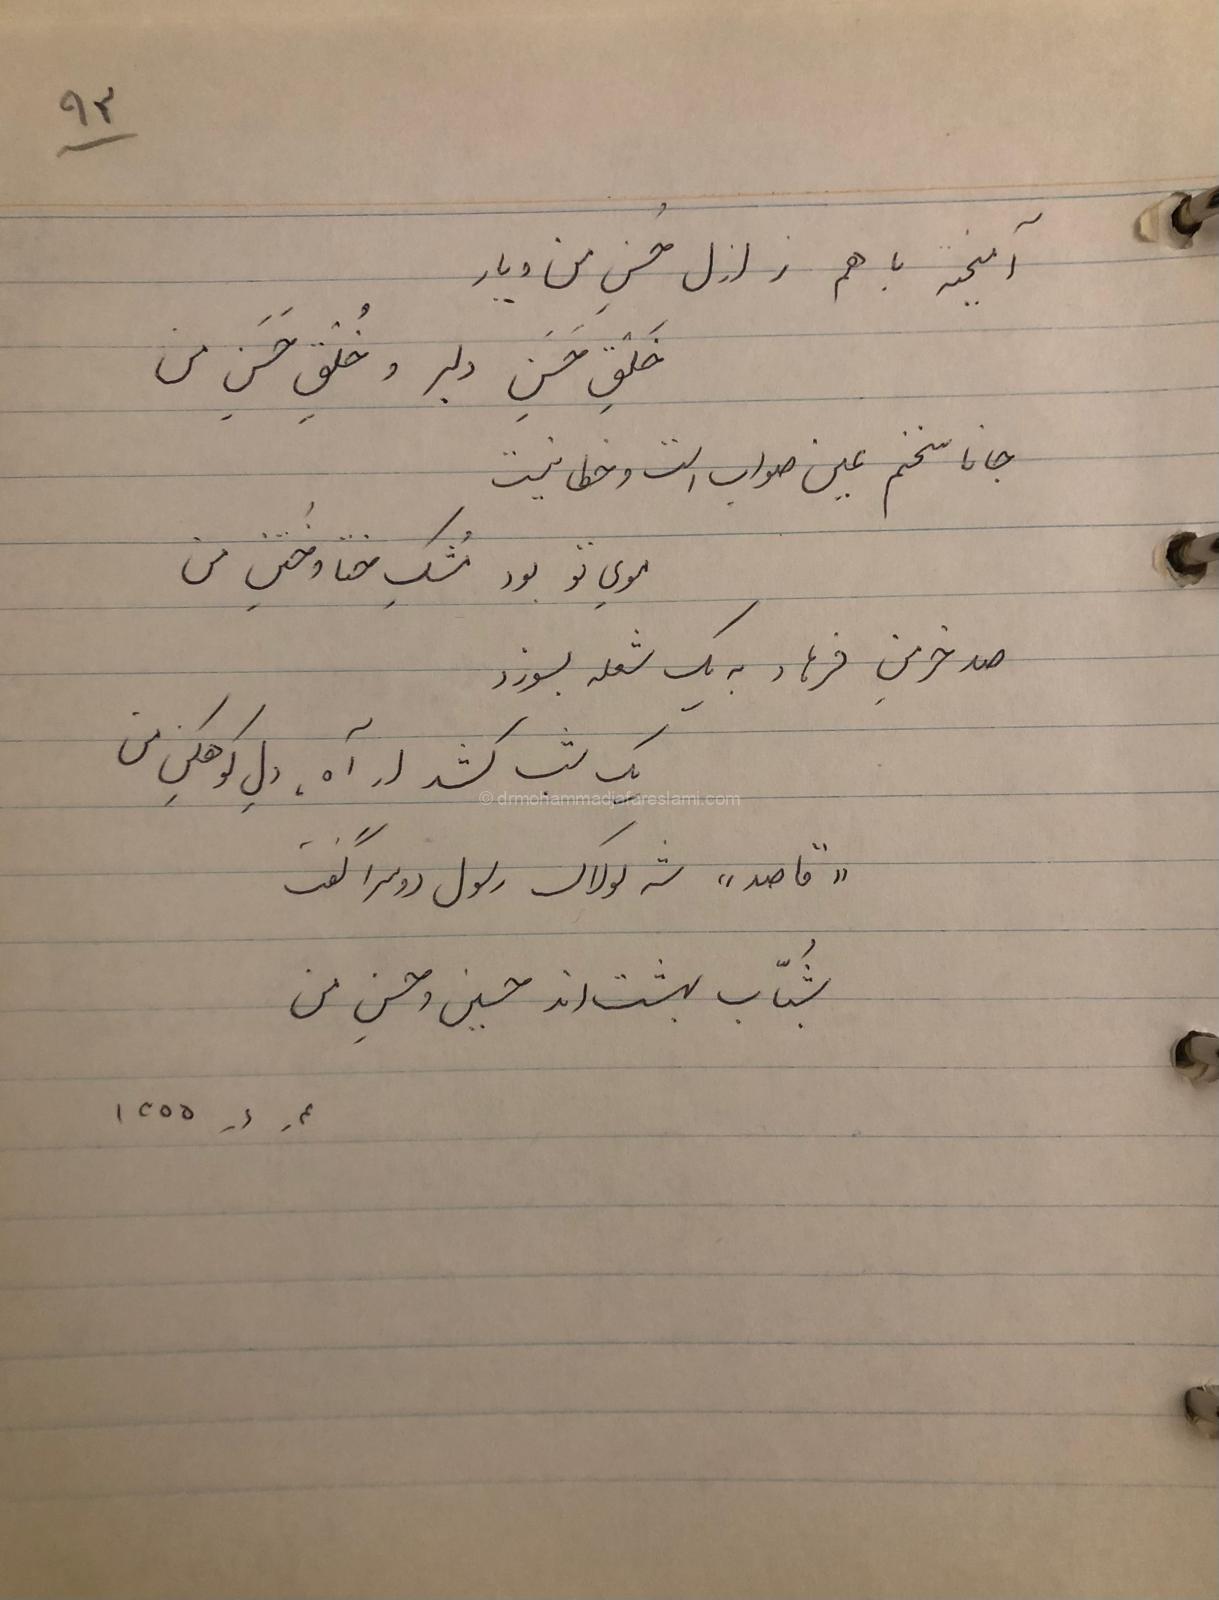 ۹۳
آمیخته با هم ز ازل حُسنِ من و یار
خَلْقِ حَسَنِ دلبر و خُلْقِ حَسَنِ من
جانا سخنم عین صواب است و خطا نیست
موی تو بود مُشکِ ختا و خُتنِ من
صد خرمنِ فرهاد به یک شعله بسوزد
یک شب کشد ار آه، دلِ کوهکنِ من
«قاصد» شه لولاک رسول دوسرا گفت
شُبّاب بهشت‌اند حسین و حسنِ من
© drmohammadjafareslami.com